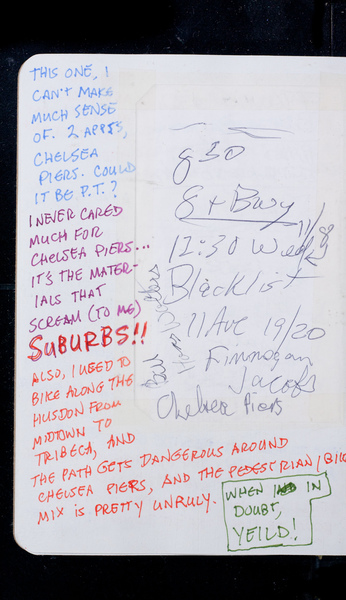 THIS ONE, I
CAN'T MAKE
MUCH SENSE
OF. 2 APPTS,
CHELSEA
PIERS. COULD
IT BE P.T.?
I NEVER CARED
MUCH FOR
CHELSEA PIERS...
IT'S THE MATER-
IALS THAT
SCREAM (TO ME)
SUBURBS!!
ALSO, I USED TO
BIKE ALONG THE
HUSDON FROM
MIDTOWN TO
TRIBECA, AND
THE PATH GETS DANGEROUS AROUND
CHELSEA PIERS, AND THE PEDESTRIAN/BIKE
MIX IS PRETTY UNRULY.
WHEN IN
DOUBT,
YEILD!
830
8 + Bwy
12:30
Blacklist
11 Ave 19/20
Finnegan
Jacobs
Chelsea Piers